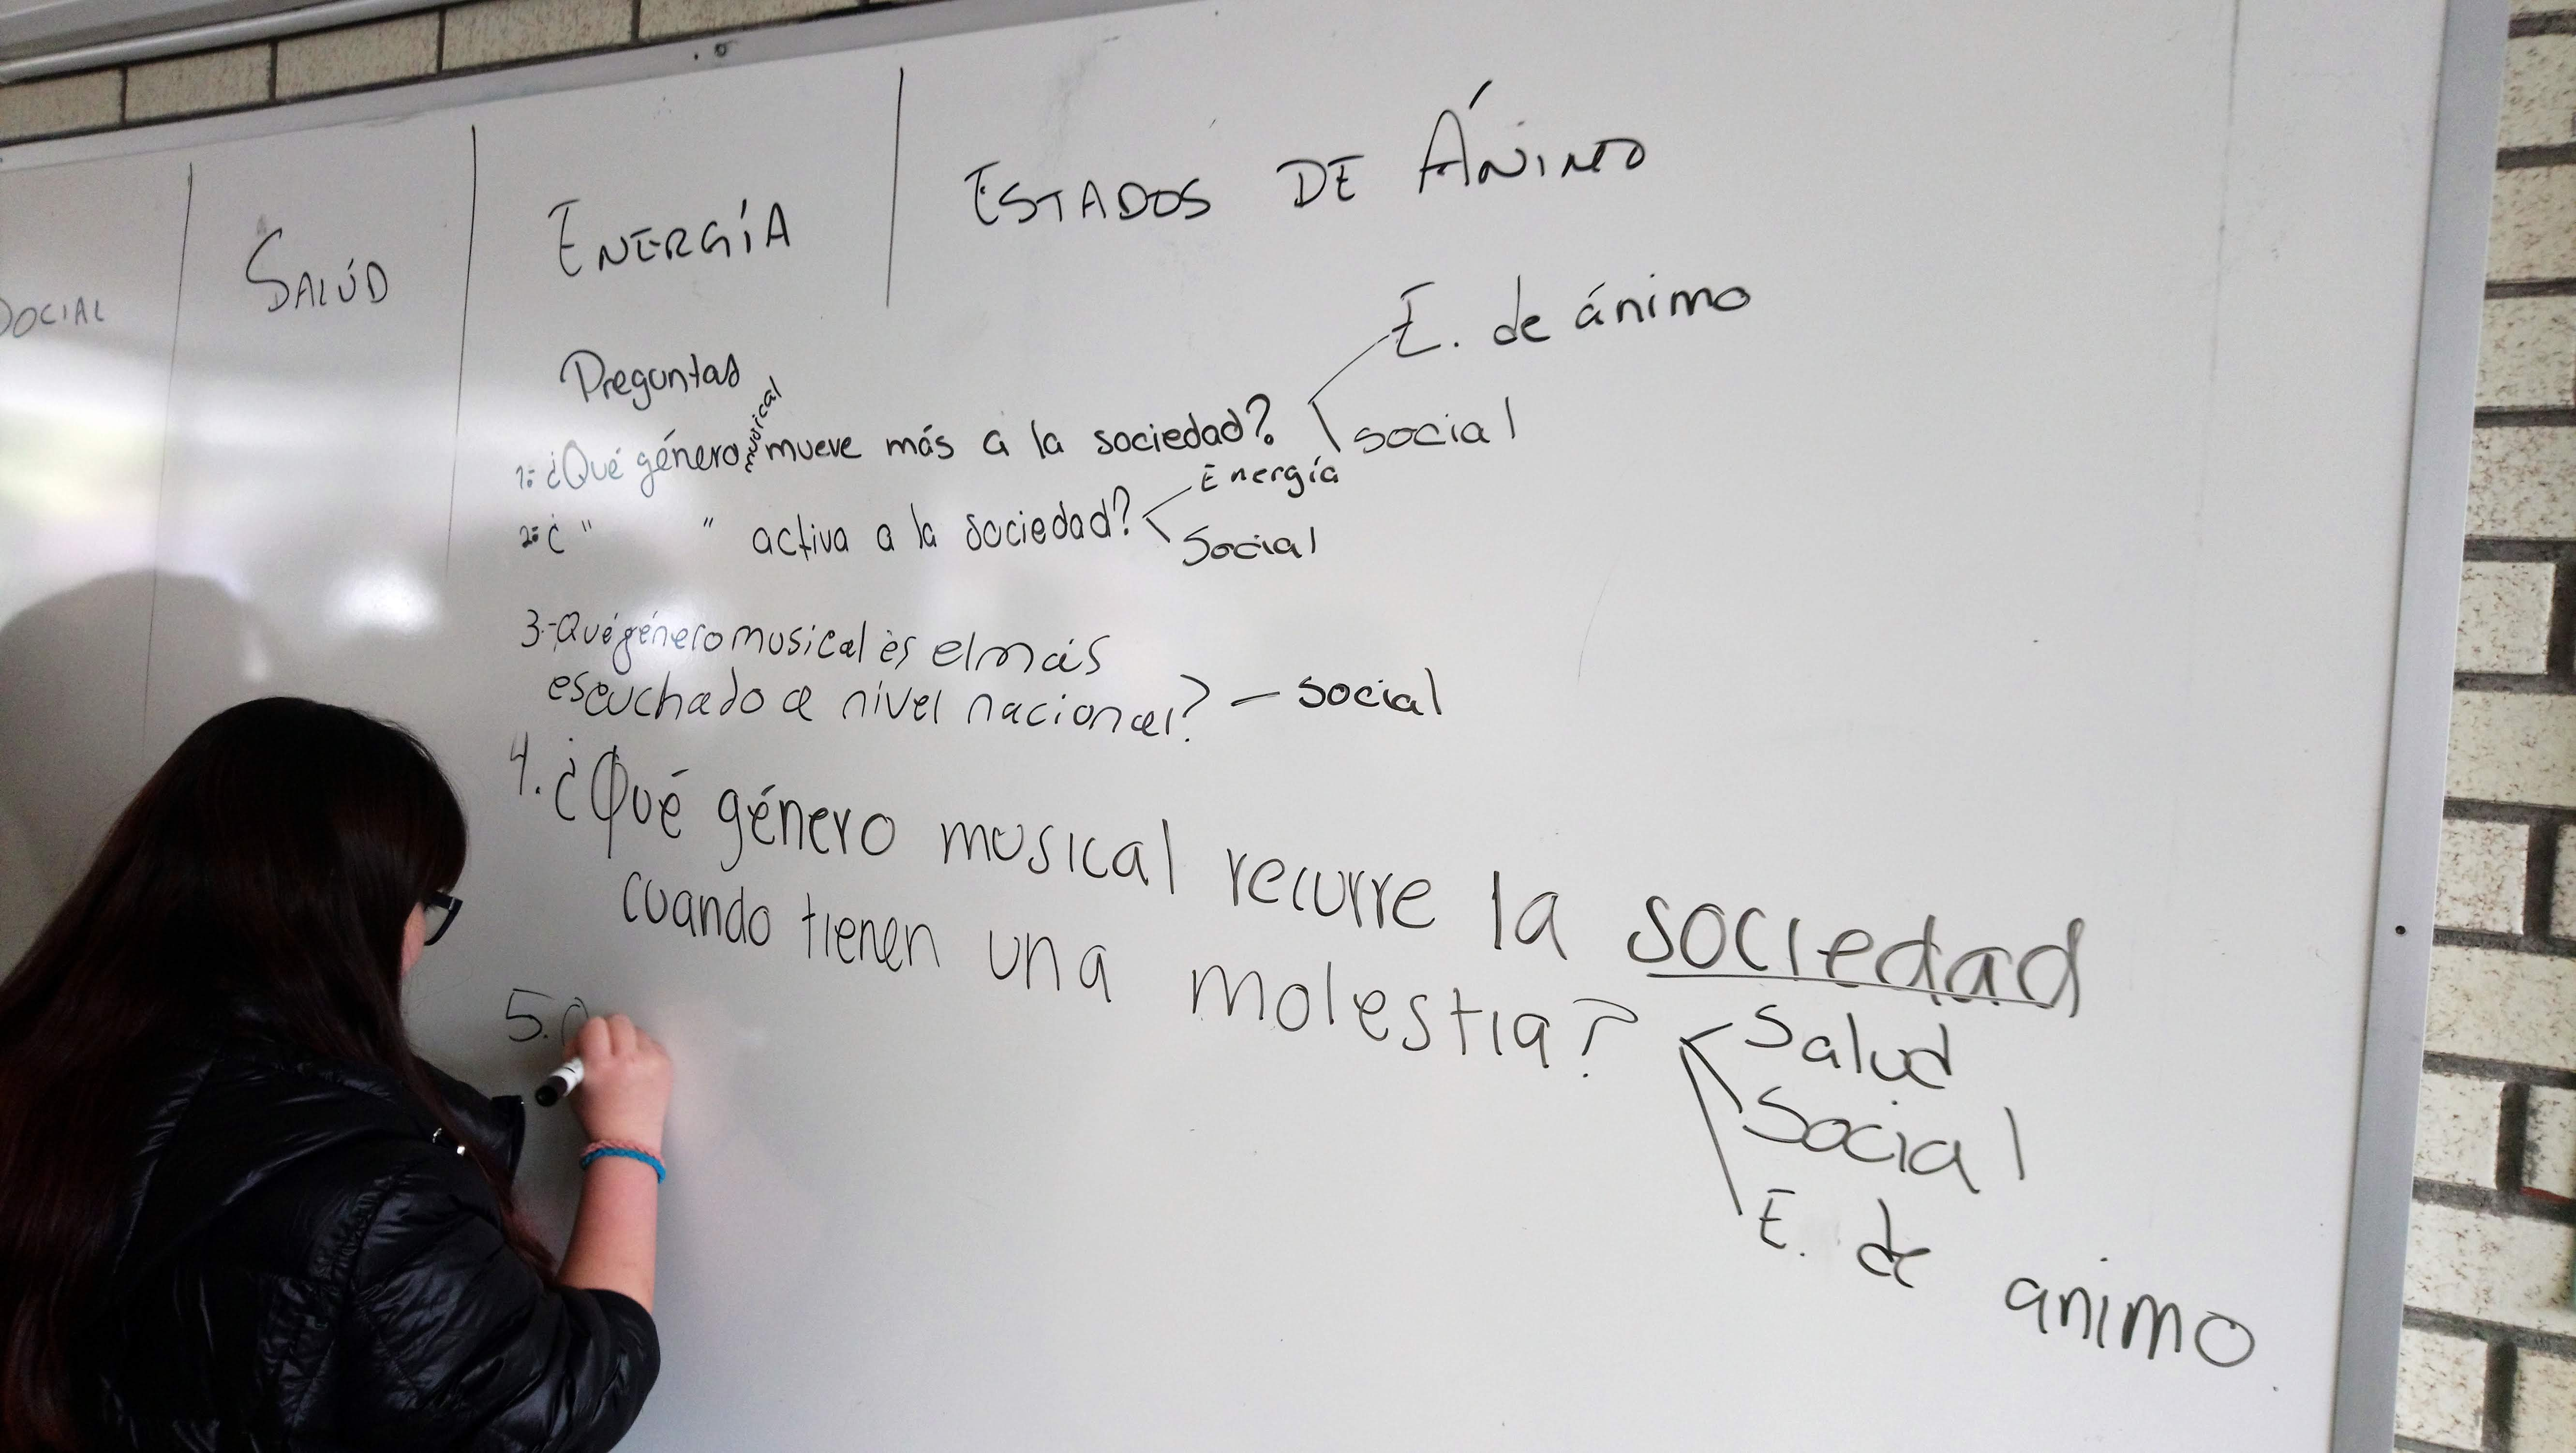 SOCIAL
SALÚD
ENERGÍA
ESTADOS DE ÁNIMO
Preguntas
1.- ¿Qué género musical mueve más a la sociedad?
E. de ánimo
social
2.- ¿ " " activa a la sociedad?
Energía
Social
3.- Qué género musical es el más
escuchado a nivel nacional? – social
4. ¿Qué género musical recurre la sociedad
cuando tienen una molestia?
Salud
Social
E. de animo
5.